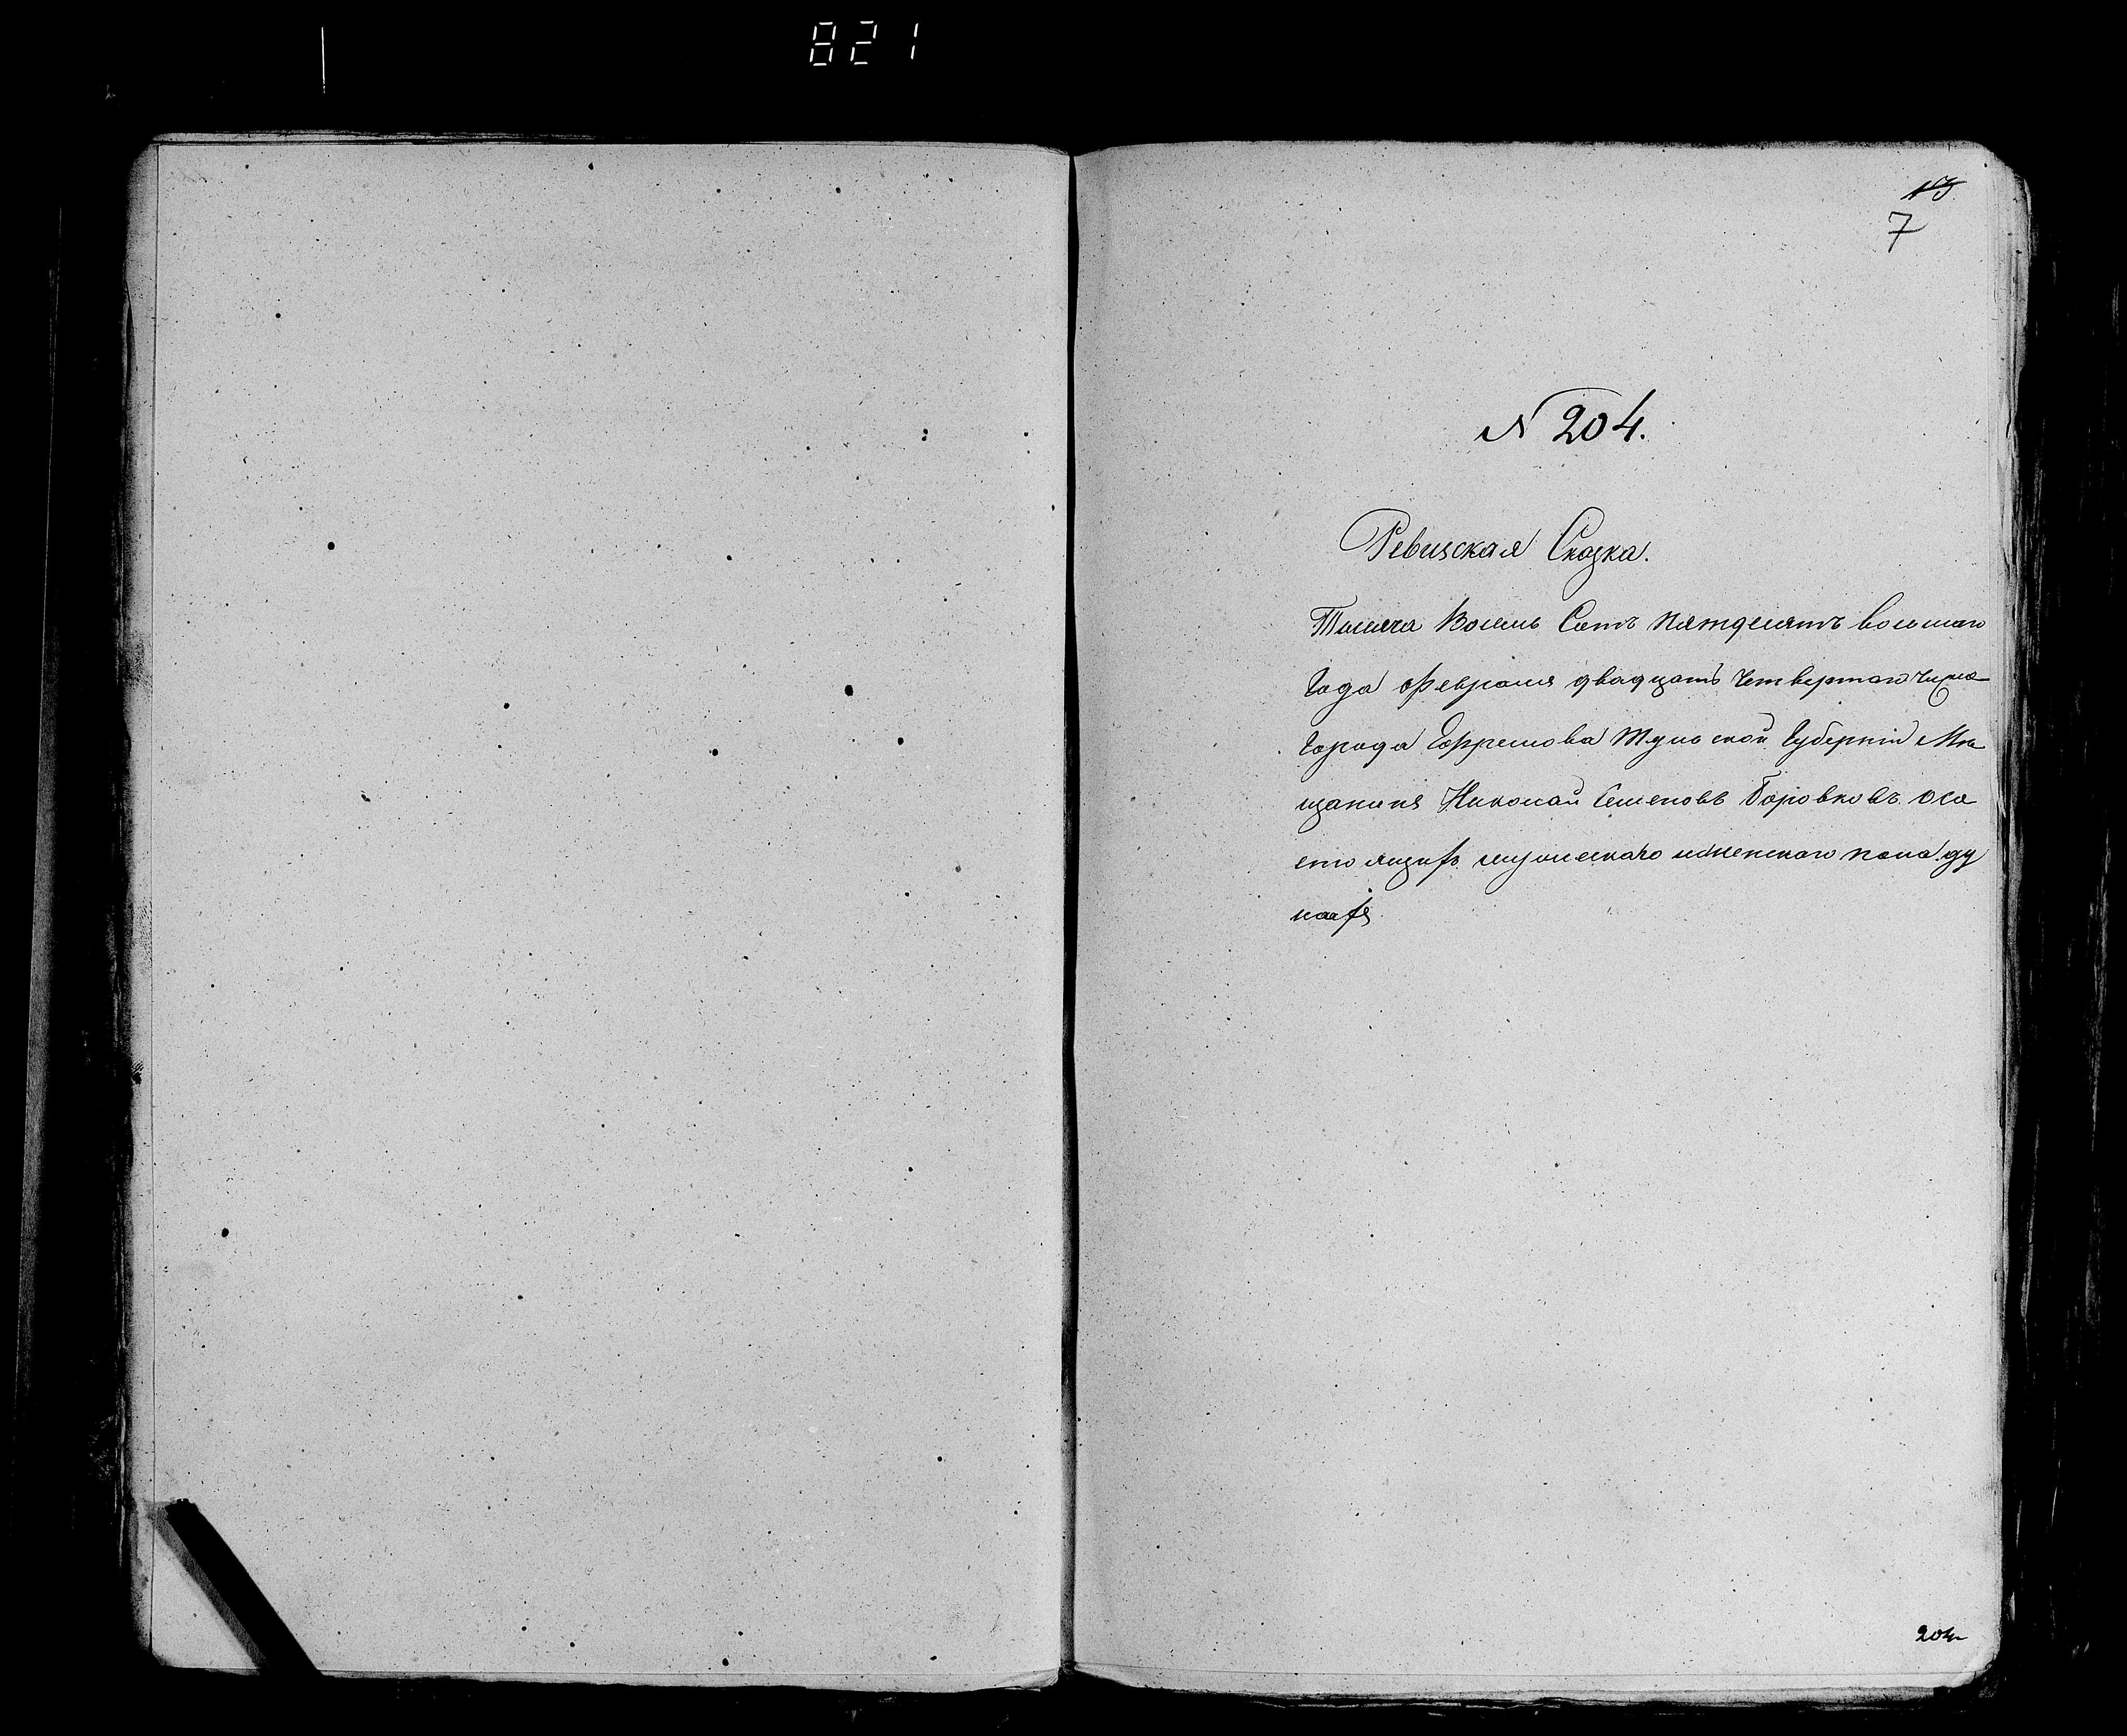 821
13
7
N 204.
Ревизская Сказка.
Тысяча Восемь Сотъ пятдесятъ восьмаго
Года февраля двадцать Четвертаго Числа
Города Ефремова Тульской Губерніи Мѣ
щанина Николай Семеновъ Боровковъ. о со
стоящихъ мужескаго и женскаго пола ду
шахъ
204